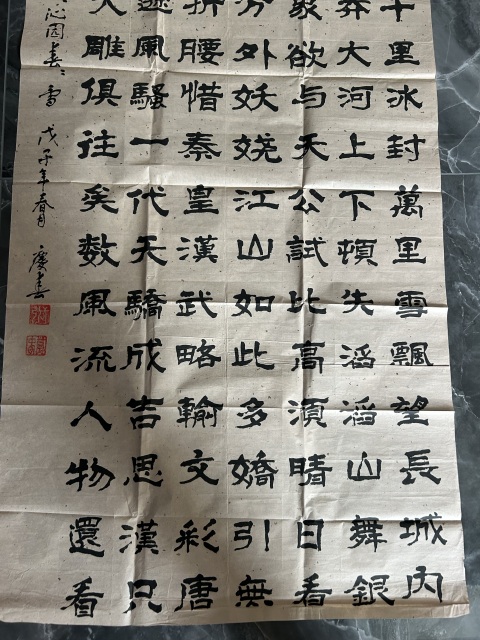 千里冰封萬里雪飄望長城内
莽大河上下頓失滔滔山舞銀
象欲与天公試比高須晴日看
分外妖娆江山如此多嬌引無
折腰惜秦皇漢武略輸文彩唐
遜風騷一代天驕成吉思漢只
大雕俱往矣数風流人物還看
沁园春：雪 戊子年春月